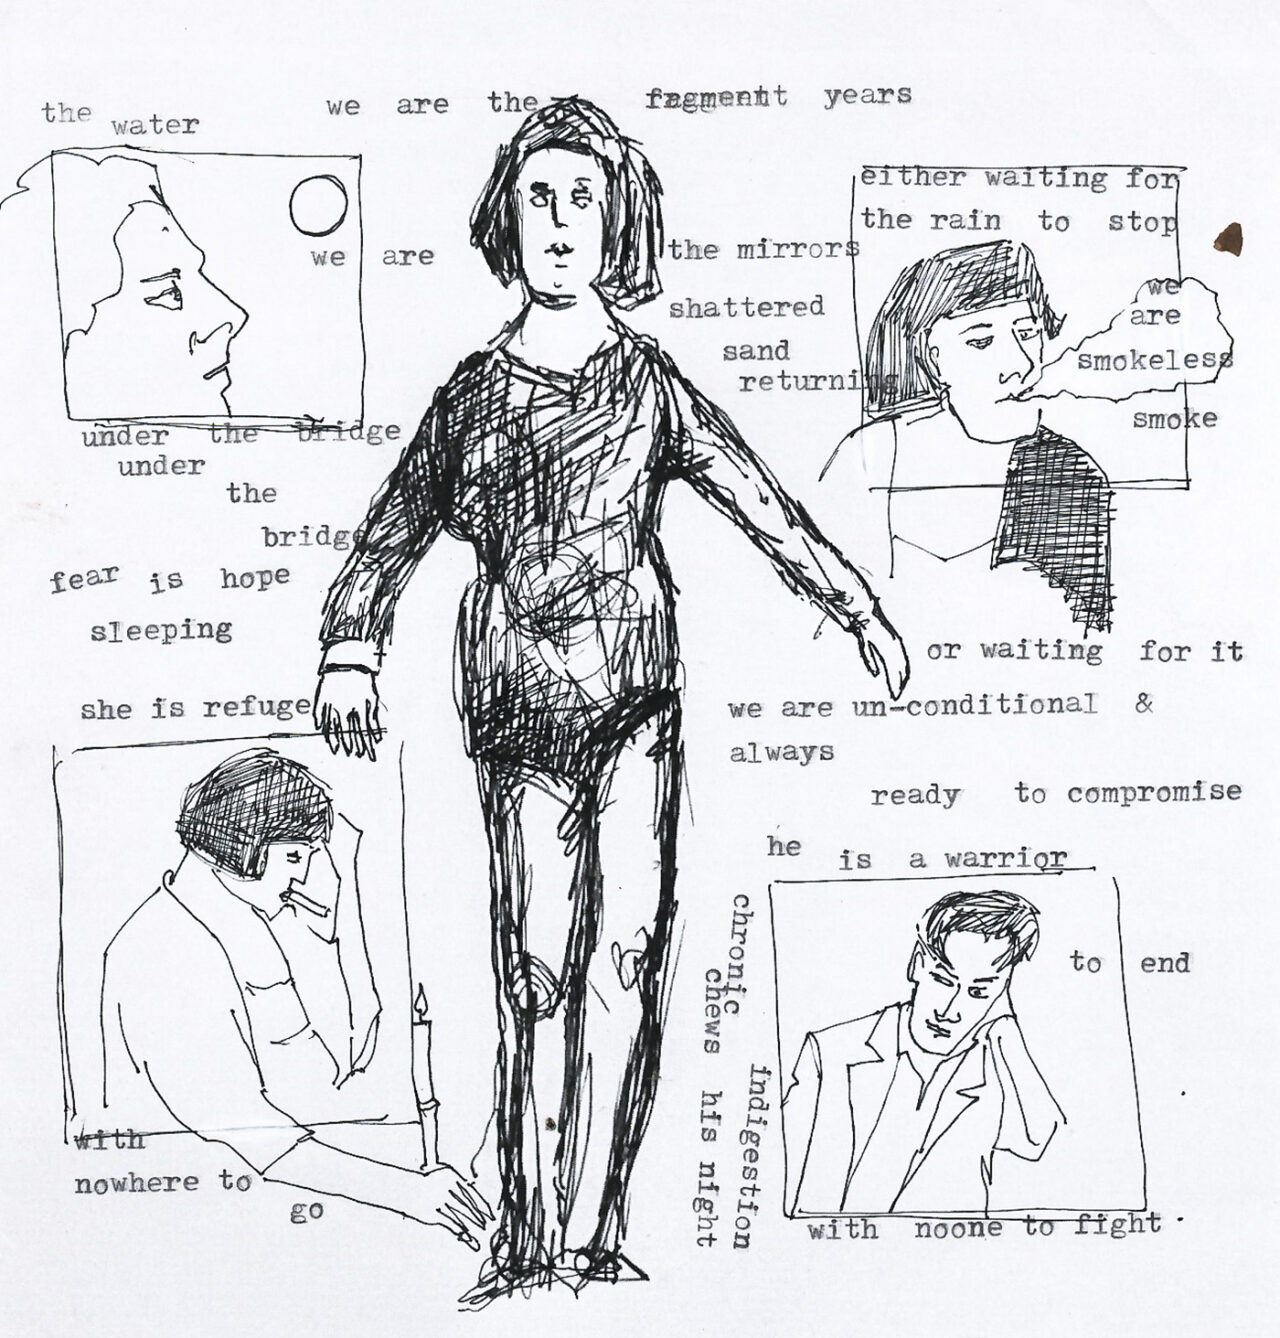 we are the fragment years
the water
we are
under the bridge
under
the
bridge
fear is hope
sleeping
she is refuge
with
nowhere to
go
the mirrors
shattered
sand
returning
either waiting for
the rain to stop
we
are
smokeless
smoke
or waiting for it
we are un-conditional &
always
ready to compromise
he is a warrior
to end
chronic indigestion
chews his night
with noone to fight